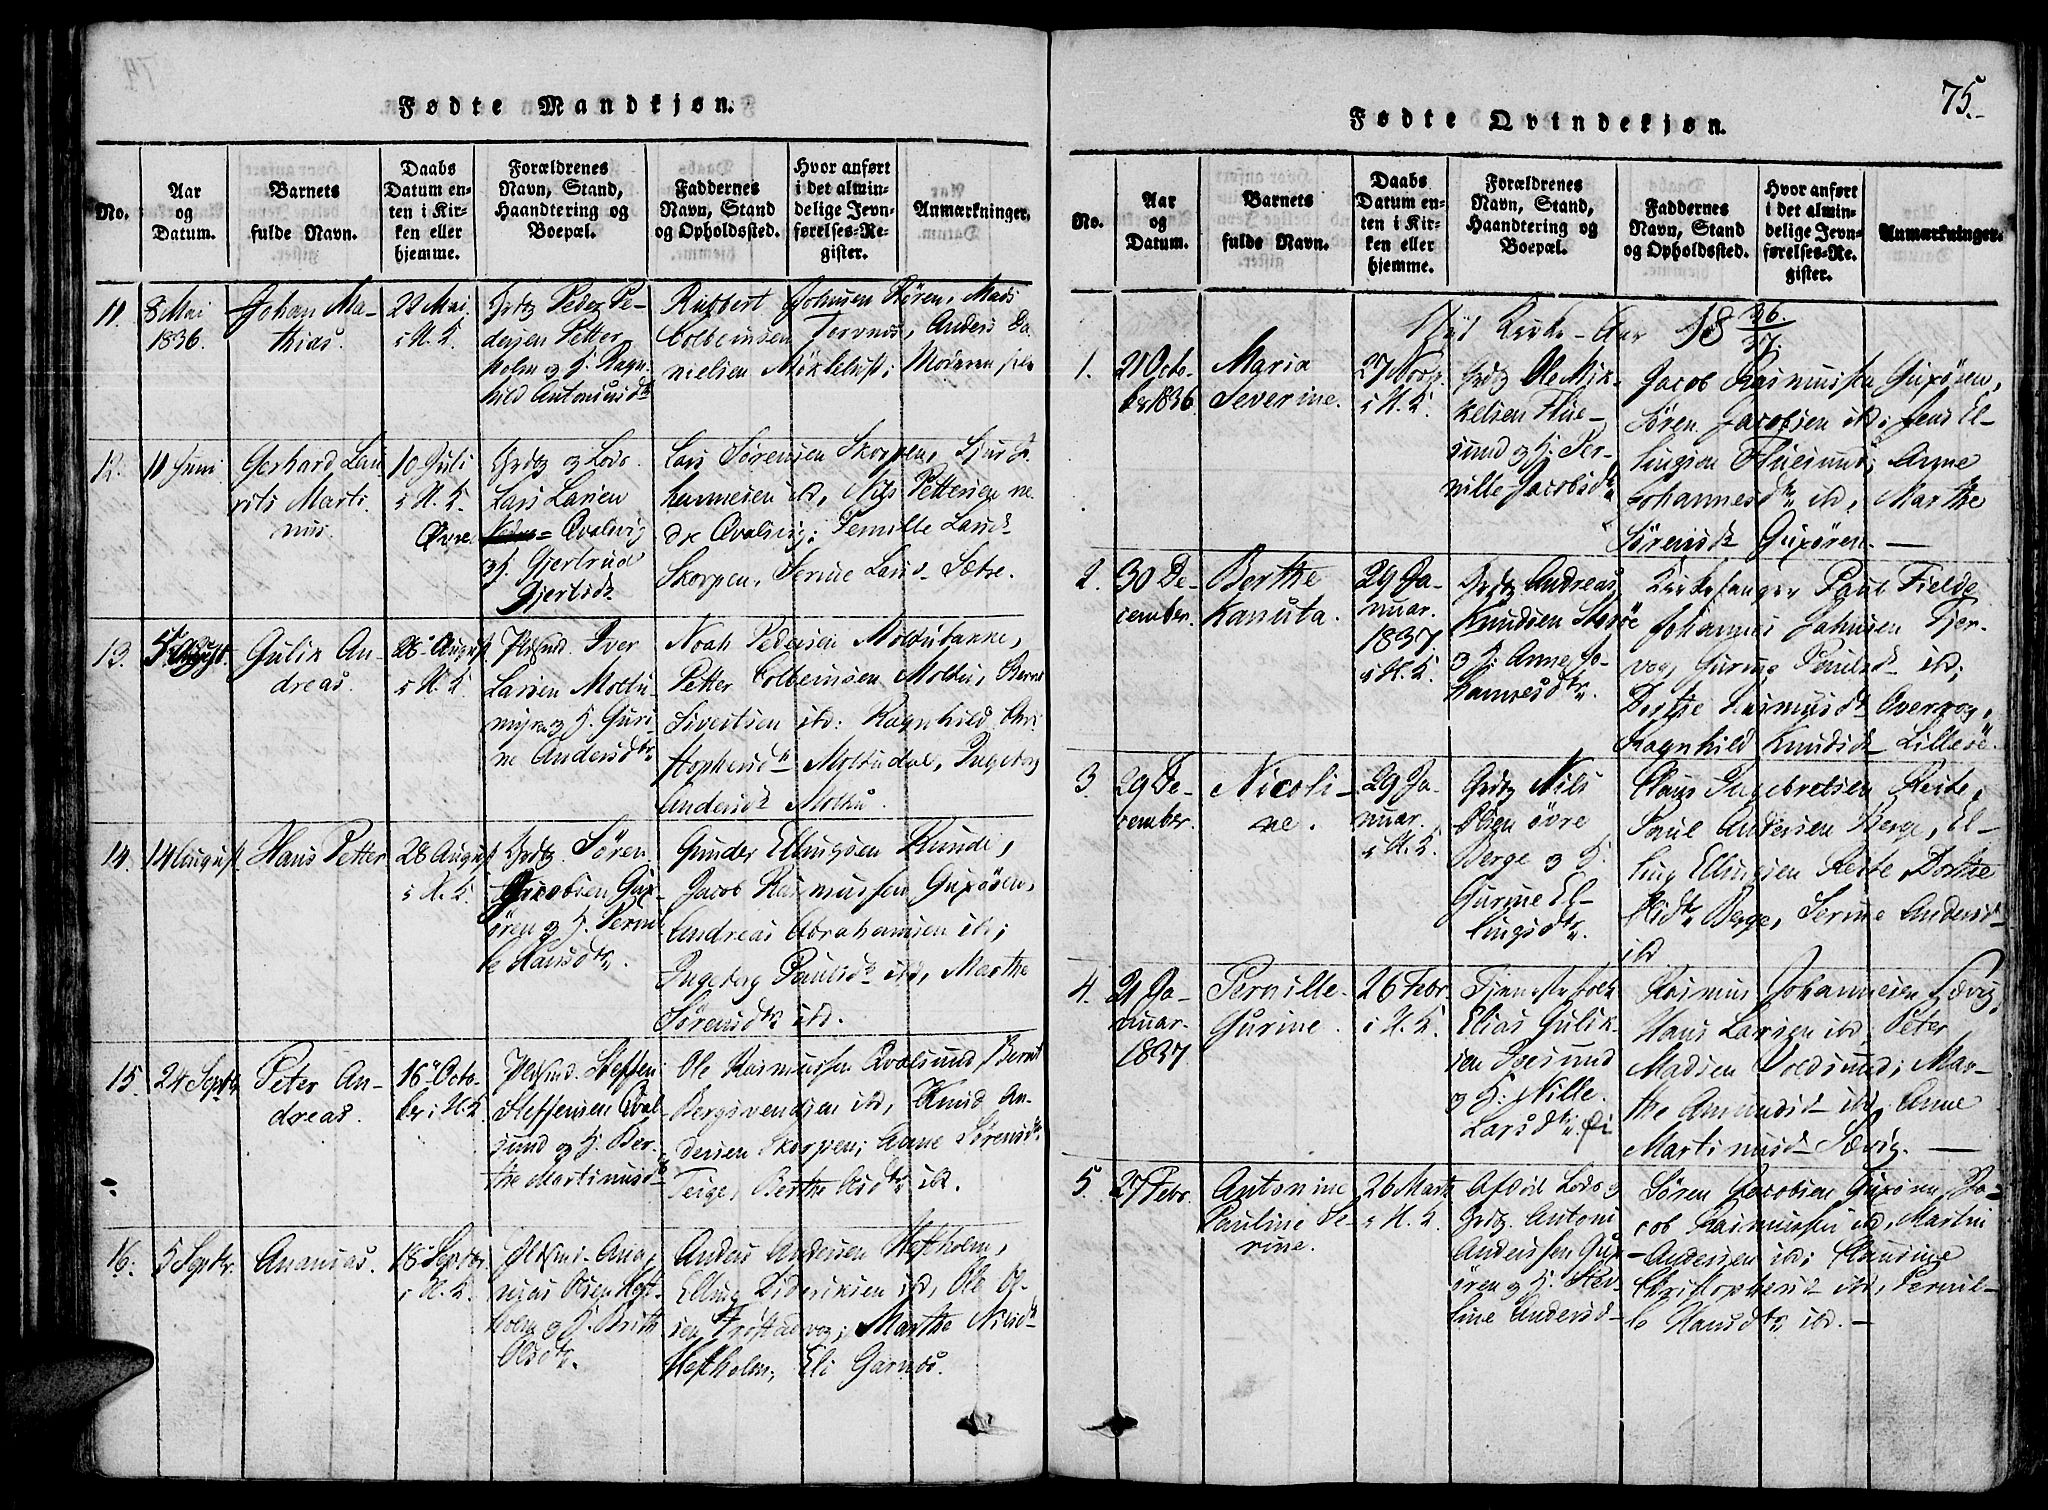 Fødte Mandkjøn.
No.
Aar
og
Datum.
Barnets
fulde Navn.
Daabs
Datum en-
ten i Kir-
ken eller
hjemme.
Forældrenes
Navn, Stand,
Haandtering og
Boepæl.
Faddernes
Navn, Stand
og Opholdssted.
Hvor anført
i det almin-
delige Jevn-
førelses-Re-
gister.
Anmærkninger.
11.
8 Mai
1836.
Johan Ma-
thias.
22 Mai
i H. K.
Grdb Peder Pe-
dersen Petter
holm og H. Ragn
hild Antonsdtr
Rubbert Johnsen Røren, Mads
Colbeinsen Torvnes, Anders Da
nielsen Myklebust;
12.
11 Juni
Gerhard Lau
rits Marti
nus.
10 Juli
i H. K.
Øvre
Grdb og Lods
Lars Larsen
Qvalsvig
og H. Gjertrud
Gjertsdtr
Lars Sørensen Skorpen, Sjur Jo
hannesen ibd, Nils Pettersen ne
dre Qvalsvig; Pernille Larsdtr
Skorpen, Serine Larsd- Sætre.
13.
5 August.
Gulik An-
dreas.
28 August
i H. K.
Plssmd. Iver
Larsen Moltu-
myra og H. Guri-
ne Andersdtr
Noah Pedersen Moltubakke,
Petter Colbeinsen Moltu, Bernt
Sivertsen ibd: Ragnhild Chri
stophersdtr Moltudal, Ingeborg
Andersdtr Moltu.
14.
14 August.
Hans Petter
28 August
i H. K.
Grdb. Søren
Jacobsen Gux-
øren og H. Pernil
le Hansdtr.
Gunder Ellingsen Runde,
Jacob Rasmussen Guxøren,
Andreas Abrahamsen ibd;
Ingeborg Paulsdtr ibd, Marthe
Sørensdtr ibd.
15.
24 Septbr.
Peter An-
dreas.
16 Octo-
ber i H. K.
Plssmd. Steffen
Steffensen Qval
sund og H. Ber-
the Martinusd-
Ole Rasmussen Qvalsund, Bernt
Bergsvendsen ibd, Knud An-
dersen Skorpen; Anne Sørensdtr
Teige, Berthe Olsdtr ibd.
16.
5 Septbr.
Ananias.
18 Septbr.
i H. K.
Plssmd- Ana-
nias Olsen Heft-
holm og H. Brith
Olsdtr.
Anders Andersen Heftholm,
Elling Dideriksen ibd, Ole Ol-
sen Frøstadvog; Marthe Nilsdtr
Heftholm, Eli Garnæs.
75.
Fødte Qvindekjøn.
No.
Aar
og
Datum.
Barnets
fulde Navn.
Daabs
Datum en-
ten i Kir-
ken eller
hjemme.
Forældrenes
Navn, Stand,
Haandtering og
Boepæl.
Faddernes
Navn, Stand
og Opholdssted.
Hvor anført
i det almin-
delige Jevn-
førelses-Re-
gister.
Anmærkninger.
Nyt Kirke-Aar 18 36/37.
1.
21 Octo-
ber 1836
Maria
Severine.
27 Novbr.
i H. K.
Grdb Ole Myk-
kelsen Flue-
sund og H. Per-
nille Jacobsdtr
Jacob Rasmussen Guxøren,
Søren Jacobsen ibd; Jens El-
lingsen Fluesund; Anne
Johannesdtr ibd, Marthe
Sørensdtr Guxøren. —
2.
30 De-
cember.
Berthe
Kanuta.
29 Ja-
nuar.
1837.
i H. K.
Grdb Andreas
Knudsen Storø
og H. Anne Jo-
hannesdtr.
Kirkesanger Paul Fielde
Johannes Johnsen Tjer-
vog, Gurine Paulsdtr ibd;
Berthe Rasmusdtr Overvog,
Ragnhild Knudsdtr Lillesø.
3.
29 De-
cember.
Nicoli-
ne.
29 Ja-
nuar.
i H. K.
Grdb Nils
Olsen øvre
Berge og H.
Gurine El-
lingsdtr.
Claus Ingebretsen Reite,
Paul Andersen Berge, El-
ling Ellingsen Reite, Dorthe
Berge, Serine Andersd-
ibd
4.
21 Ja-
nuar.
1837
Pernille
Gurine.
26 Febr.
i H. K.
Tjenestefolk
Elias Gulik-
sen
og H. Nille
Larsdtr.
Rasmus Johannesen Sævig,
Hans Larsen ibd; Peter
Madsen Voldsund; Mar-
the Amundsd- ibd, Anne
Martinusd- Sævig. —
5.
27 Febr.
Antonine
Pauline Se-
rine.
26 Marts
i H. K.
Afdød Lods og
Grdb. Antoni
Anderssen Gux
øren og H.
line Andersd-
Søren Jacobsen Guxøren, Ja-
cob Rasmussen ibd, Martin
Andersen ibd; Hansine
Christophersd- ibd, Pernil-
le Hansdtr ibd. —